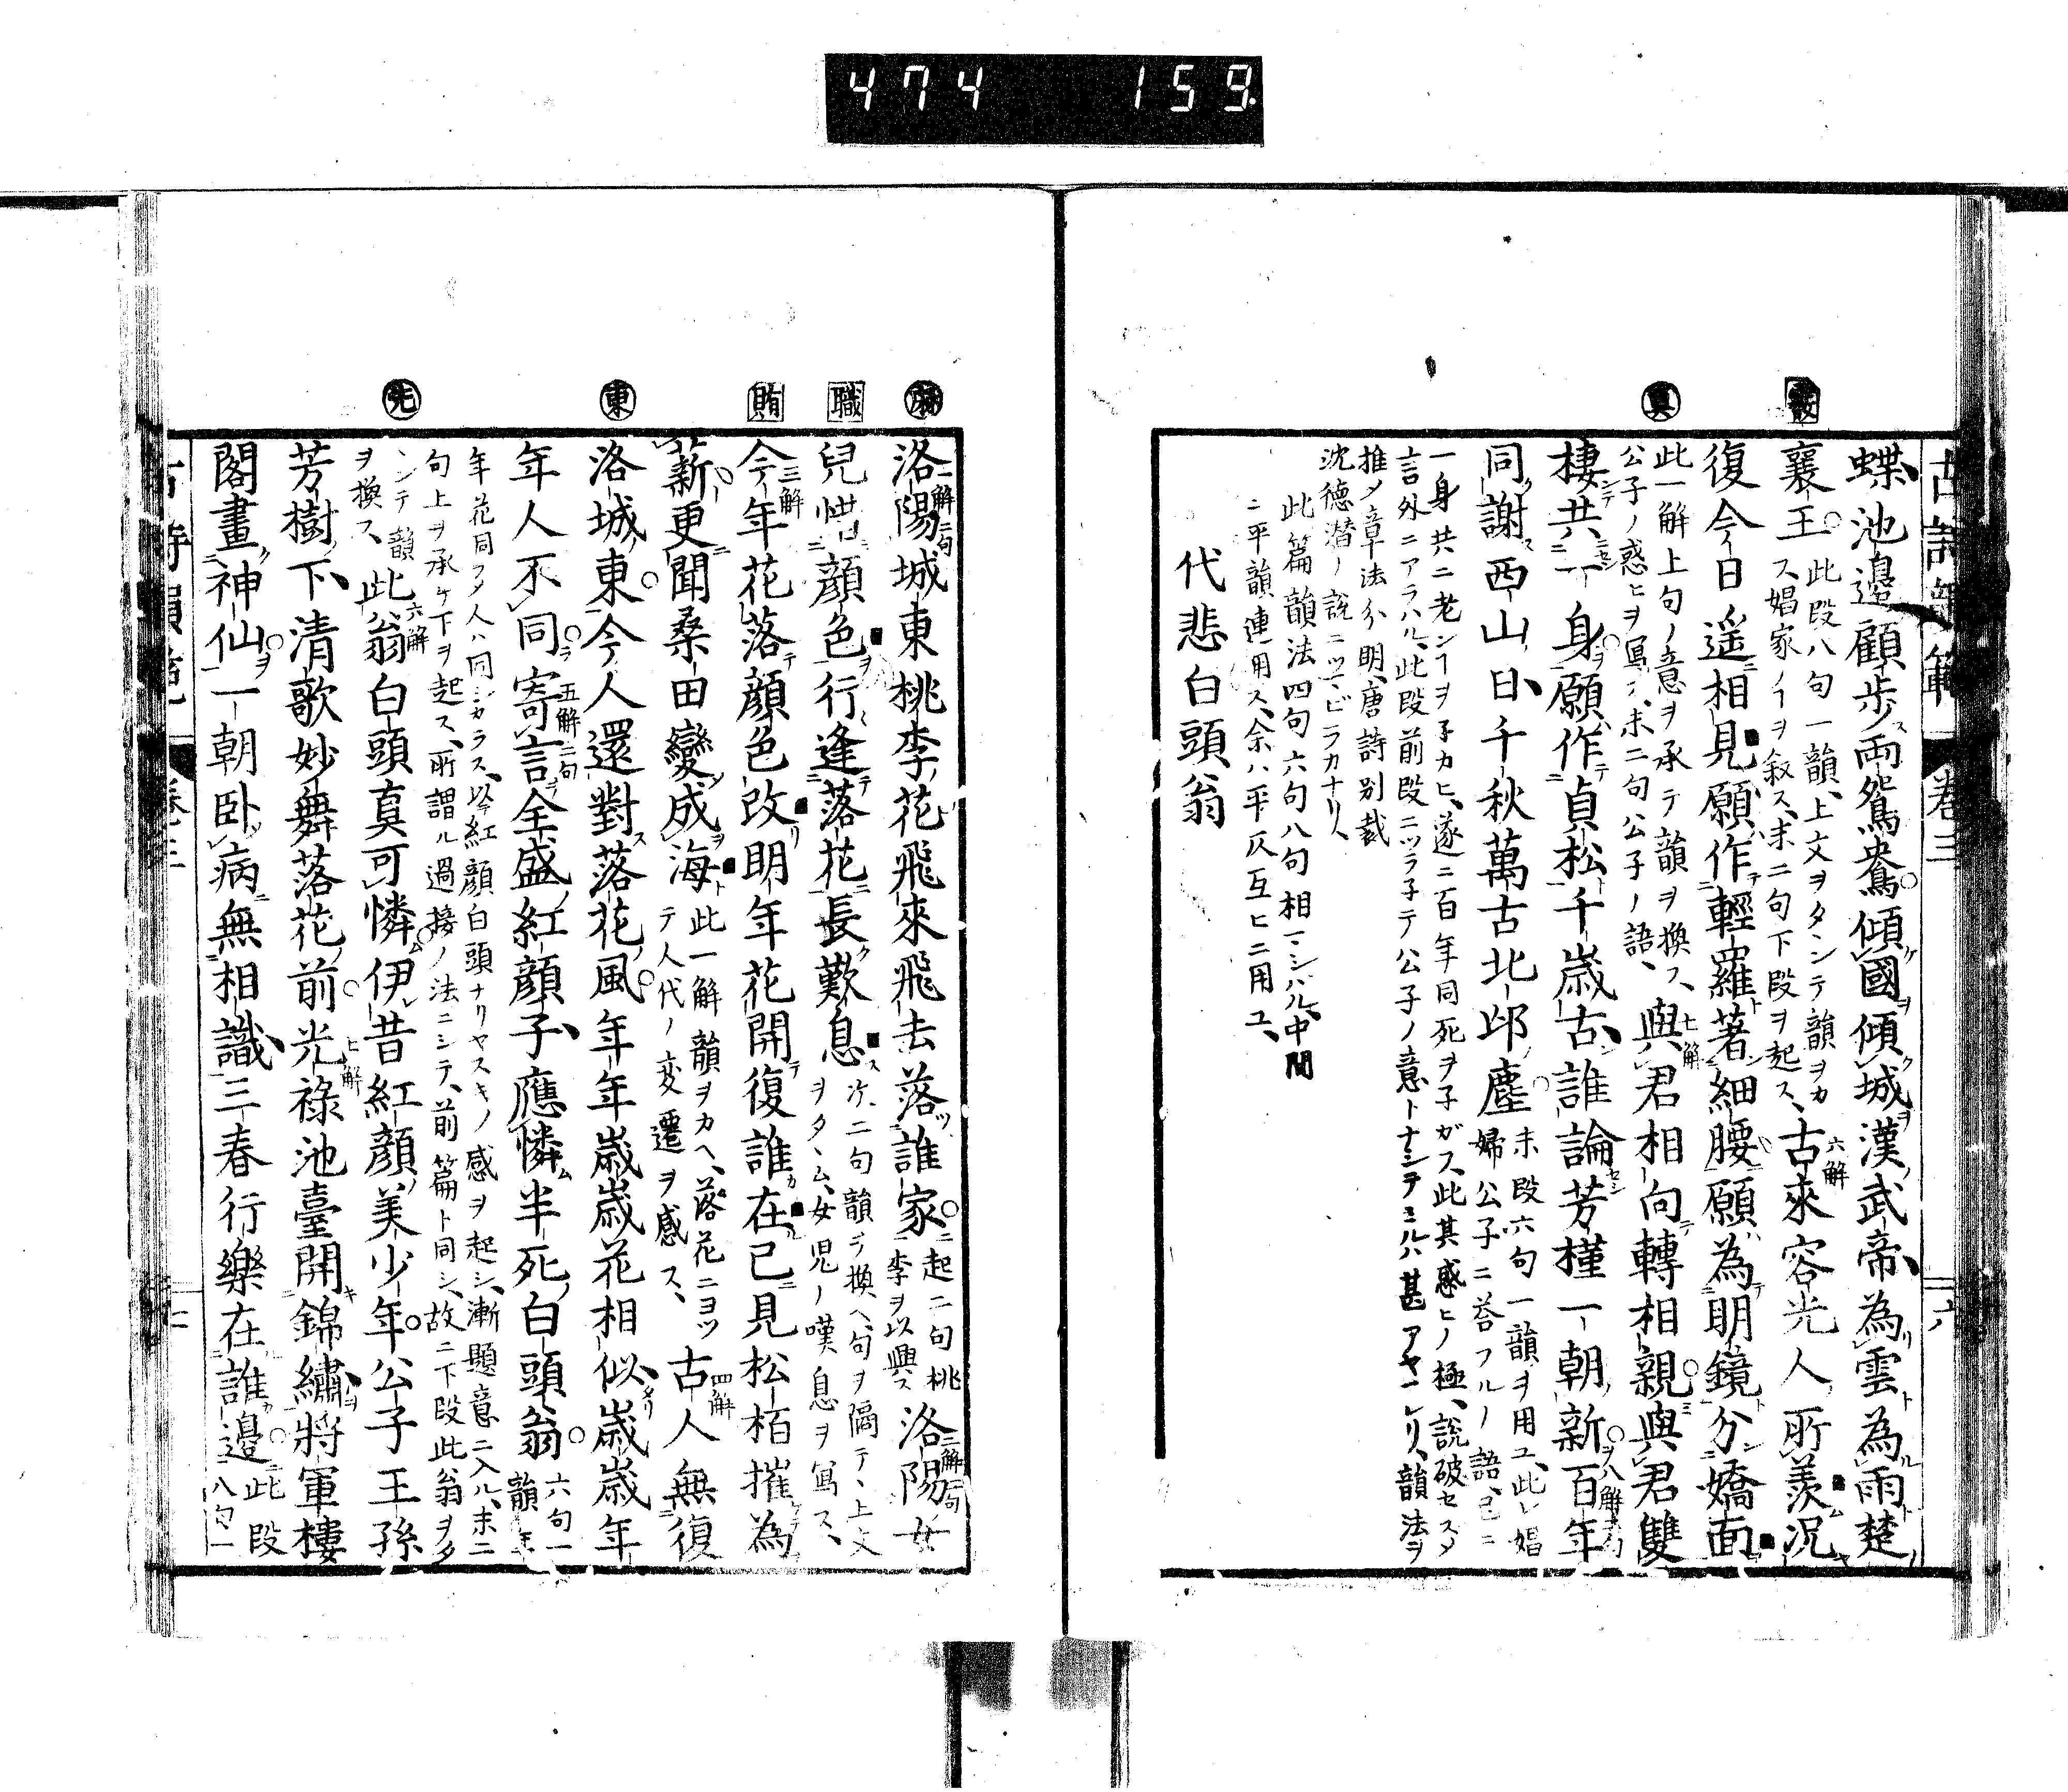 474 159
古詩韻範 卷三 六
霰
眞
蝶池邊顧歩兩鴛鴦傾國傾城漢武帝為雲為雨楚
襄王此段八句一韻、上文ヲタンテ韻ヲカ
ス娼家ノヿヲ叙ス、末二句下段ヲ起ス、古來容光人所羨況
復今日遥相見願作輕羅著細腰願為明鏡分嬌面
此一解上句ノ意ヲ承テ韻ヲ換フ、
公子ノ惑ヒヲ寫ス、末二句公子ノ語、與君相向轉相親與君雙
棲共一身願作貞松千歳古誰論芳槿一朝新百年
同謝西山日千秋萬古北邙塵末段六句一韻ヲ用ユ、此レ娼
婦公子ニ荅フルノ語、已ニ
一身共ニ老ンヿヲ子カヒ、遂ニ百年同死ヲ子ガス、此其惑ヒノ極、説破セスメ
言外ニアラハル、此段前段ニツラ子テ公子ノ意トナシテミルハ甚アヤマレリ、韻法ヲ
推メ章法分明、唐詩別裁
沈德潜ノ説ニツマビラカナリ、
此篇韻法四句六句八句相マシハル、中間
ニ平韻連用ス、余ハ平仄互ヒニ用ユ、
代悲白頭翁
麻
職
賄
東
先
洛陽城東桃李花飛來飛去落誰家起二句桃
李ヲ以興ス洛陽女
兒惜顔色行逢落花長歎息次ノ二句韻ヲ換ヘ、句ヲ隔テ、上文
ヲタヽム、女児ノ嘆息ヲ寫ス、
今年花落顔色改明年花開復誰在已見松栢摧為
薪更聞桑田變成海此一解韻ヲカヘ、落花ニヨツ
テ人代ノ変遷ヲ感ス、古人無復
洛城東今人還對落花風年年歳歳花相似歳歳年
年人不同寄言全盛紅顔子應憐半死白頭翁六句一
韻年
年花同フメ人ハ同シカラス、以今紅顔白頭ナリヤスキノ感ヲ起シ、漸題意ニ入ル、末二
句上ヲ承ケ下ヲ起ス、所謂ル過接ノ法ニシテ、前篇ト同シ、故ニ下段此翁ヲタ
ヽンテ韻
ヲ換ス、此翁白頭真可憐伊昔紅顔美少年公子王孫
芳樹下清歌妙舞落花前光祿池臺開錦繡將軍樓
閣畫神仙一朝卧病無相識三春行樂在誰邊此段
八句一